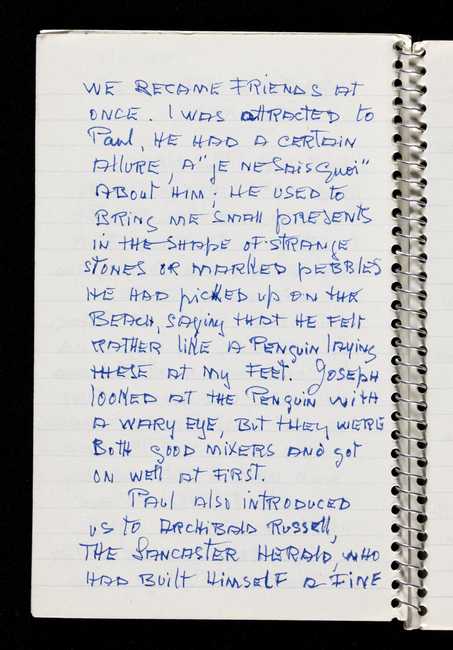 WE BECAME FRIENDS AT
ONCE. I WAS ATTRACTED TO
Paul, HE HAD A CERTAIN
ALLURE, A "JE NE SAIS QUOI"
ABOUT HIM; HE USED TO
BRING ME SMALL PRESENTS
IN THE SHAPE OF STRANGE
STONES OR MARKED PEBBLES
HE HAD PICKED UP ON THE
BEACH, SAYING THAT HE FELT
RATHER LIKE A PENGUIN LAYING
THESE AT MY FEET. JOSEPH
LOOKED AT THE PENGUIN WITH
A WARY EYE, BUT THEY WERE
BOTH GOOD MIXERS AND GOT
ON WELL AT FIRST.
PAUL ALSO INTRODUCED
US TO ARCHIBALD RUSSELL,
THE LANCASTER HERALD, WHO
HAD BUILT HIMSELF A FINE